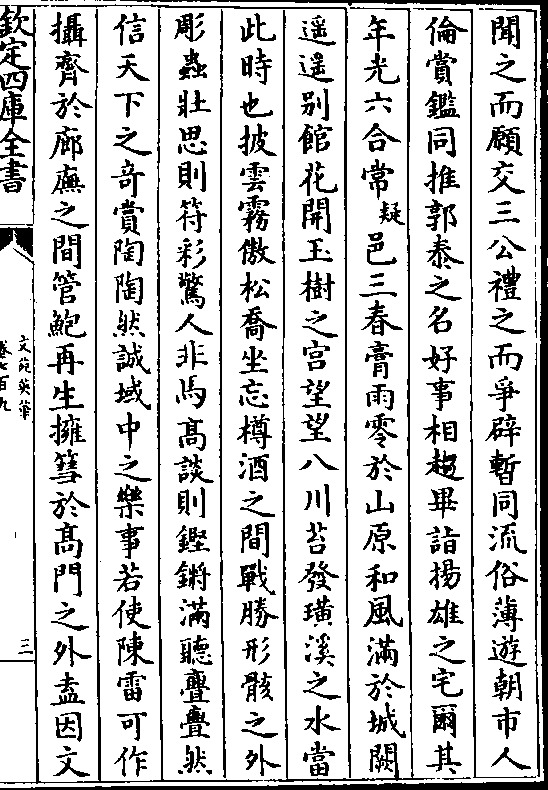 聞之而願交三公禮之而爭辟暫同流俗薄遊朝市人
倫賞鑑同推郭泰之名好事相趨畢詣揚雄之宅爾其
年光六合常疑邑三春膏雨零於山原和風滿於城闕
遥遥别館花開玉樹之宮望望八川苔發璜溪之水當
此時也披雲霧傲松喬坐忘樽酒之間戰勝形骸之外
彫蟲壯思則符彩驚人非馬髙談則鏗鏘滿聽亹亹然
信天下之竒賞陶陶然誠域中之樂事若使陳雷可作
攝齊於廊廡之間管鮑再生擁篲於髙門之外盍因文
欽定四庫全書
文苑英華
卷七百九
三